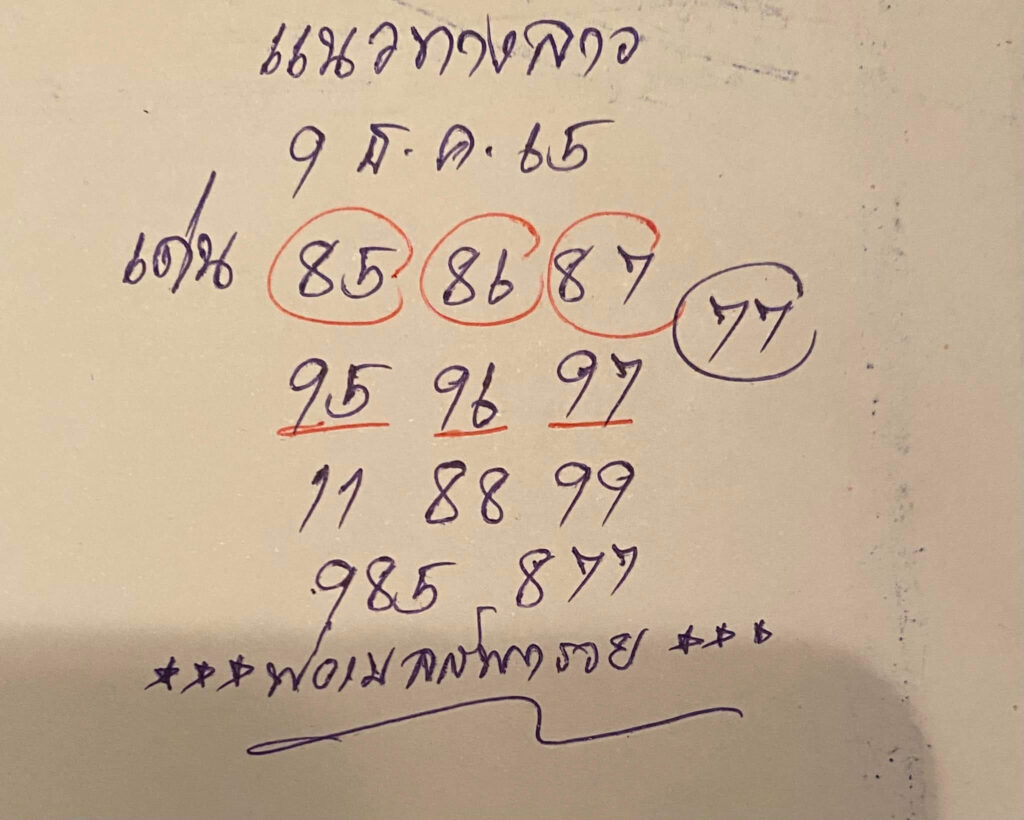 แนวทางลาว
9 ธ.ค. 65
เด่น 85 86 87 77
95 96 97
11 88 99
985 877
***พ่อเมลล์พารวย***